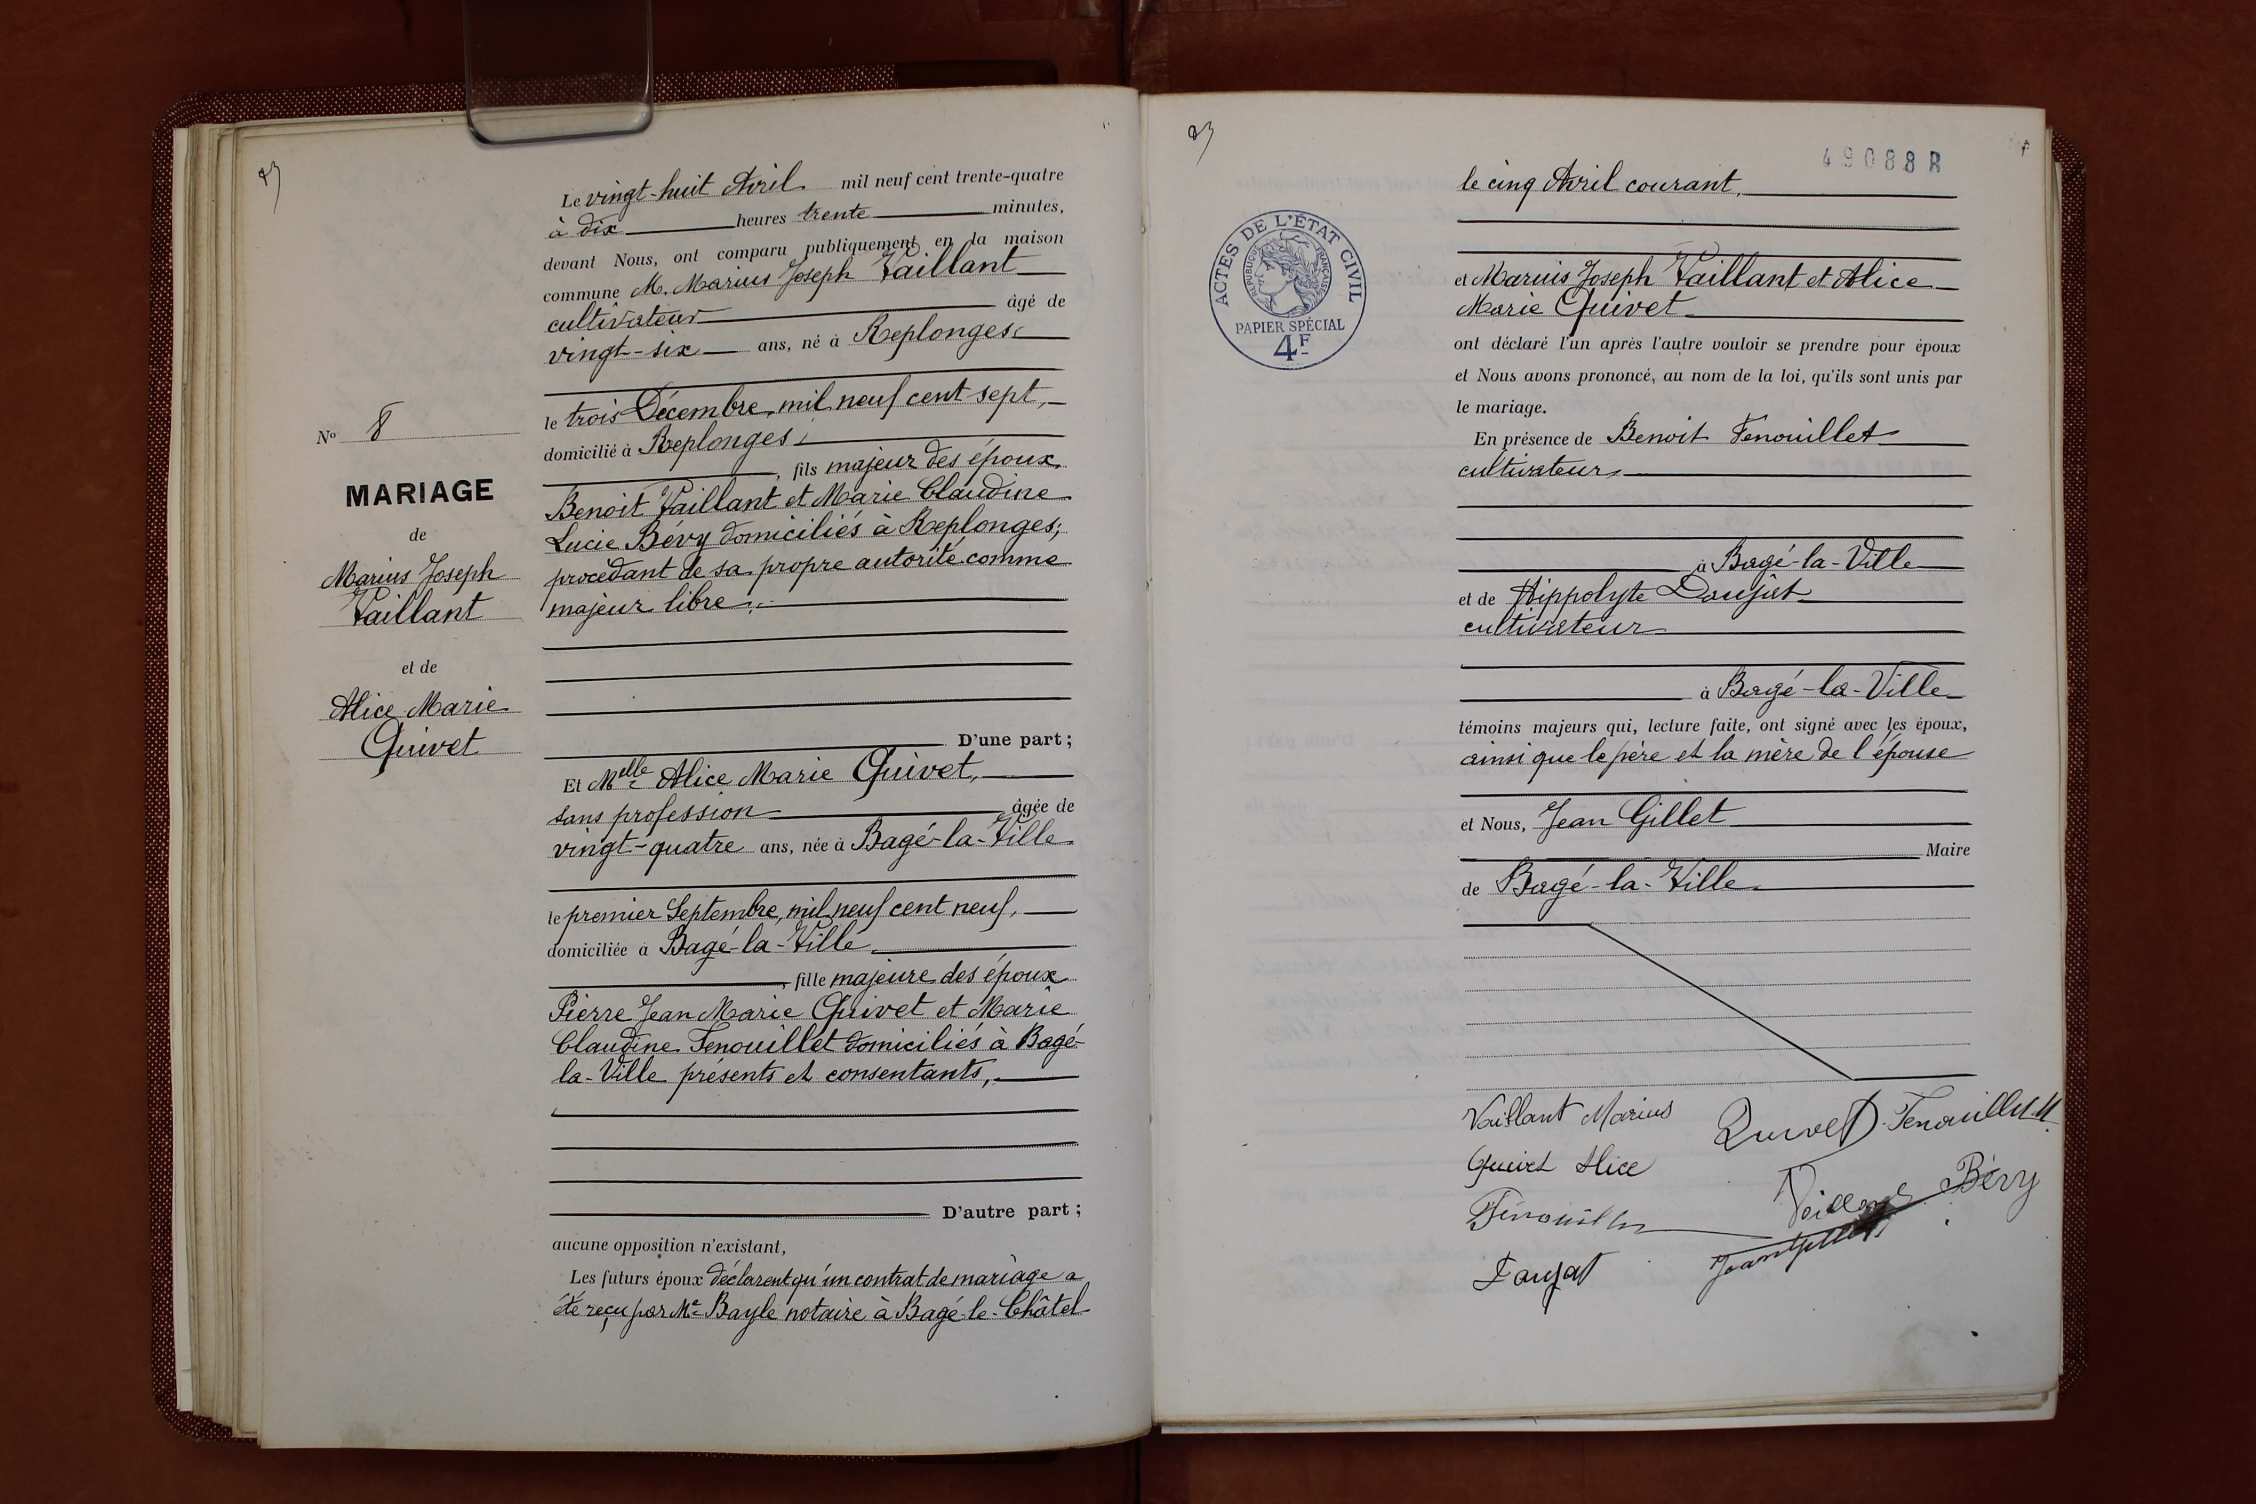 Le vingt-huit Avril mil neuf cent trente-quatre
à dix heures trente minutes,
devant Nous, ont comparu publiquement en la maison
commune M. Marius Joseph Vaillant
cultivateur âgé de
vingt-six ans, né à Replonges,
le trois Décembre, mil neuf cent sept,
domicilié à Replonges,
, fils majeur des époux
Benoit Vaillant et Marie Claudine
Lucie Bévy domiciliés à Replonges;
procédant de sa propre autorité comme
majeur libre.
D'une part;
Nº 8
MARIAGE
de
Marius Joseph
Vaillant
et de
Alice Marie
Quivet
Et Melle Alice Marie Quivet,
sans profession âgée de
vingt-quatre ans, née à Bagé-la-Ville
le premier Septembre, mil neuf cent neuf,
domiciliée à Bagé-la-Ville
, fille majeure des époux
Pierre Jean Marie Quivet et Marie
Claudine Fenouillet domiciliés à Bagé-
la-Ville présents et consentants,
D'autre part;
aucune opposition n'existant,
Les futurs époux déclarent qu'un contrat de mariage a
été reçu par Me Bayle notaire à Bagé-le-Châtel
49088 R
le cinq Avril courant,
ACTES DE L'ÉTAT CIVIL
RÉPUBLIQUE FRANÇAISE
PAPIER SPÉCIAL
4F
et Marius Joseph Vaillant et Alice
Marie Quivet
ont déclaré l'un après l'autre vouloir se prendre pour époux
et Nous avons prononcé, au nom de la loi, qu'ils sont unis par
le mariage.
En présence de Benoit Fenouillet
cultivateur
à Bagé-la-Ville
et de Hippolyte Daujat
cultivateur
à Bagé-la-Ville
témoins majeurs qui, lecture faite, ont signé avec les époux,
ainsi que le père et la mère de l'épouse
et Nous, Jean Gillet
Maire
de Bagé-la-Ville
Vaillant Marius
Quivet Fenouillet
Quivet Alice
Bévy
Daujat